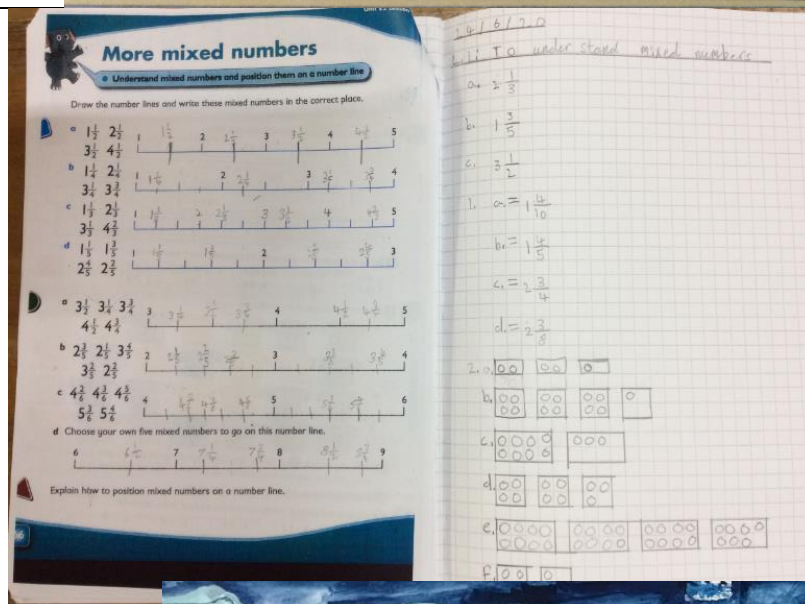 More mixed numbers
• Understand mixed numbers and position them on a number line
Draw the number lines and write these mixed numbers in the correct place.
a 1½ 2½
3½ 4½
1 1½ 2 2½ 3 3½ 4 4½ 5
b 1¼ 2¼
3¼ 3¾
1 1¼ 2 2¼ 3 3¼ 4
c 1⅓ 2⅓
3⅓ 4⅔
1 1⅓ 2 2⅓ 3 3⅓ 4 4⅔ 5
d 1⅕ 1⅗
2⅘ 2⅖
1 2 3
a 3½ 3¼ 3¾
4½ 4¾
3 4 5
b 2⅗ 2⅕ 3⅘
3⅖ 2⅖
2 3 4
c 4 2/6 4 3/6 4 5/6
5 3/6 5 4/6
4 5 6
d Choose your own five mixed numbers to go on this number line.
6 6½ 7 7¼ 8 9
Explain how to position mixed numbers on a number line.
24/6/20
L.I: TO understand mixed numbers
a. 2 1/3
b. 1 3/5
c. 3 1/2
1. a. = 1 4/10
b. = 1 4/5
c. = 2 3/4
d. = 2 3/8
2. a.
b.
c.
d.
e.
f.